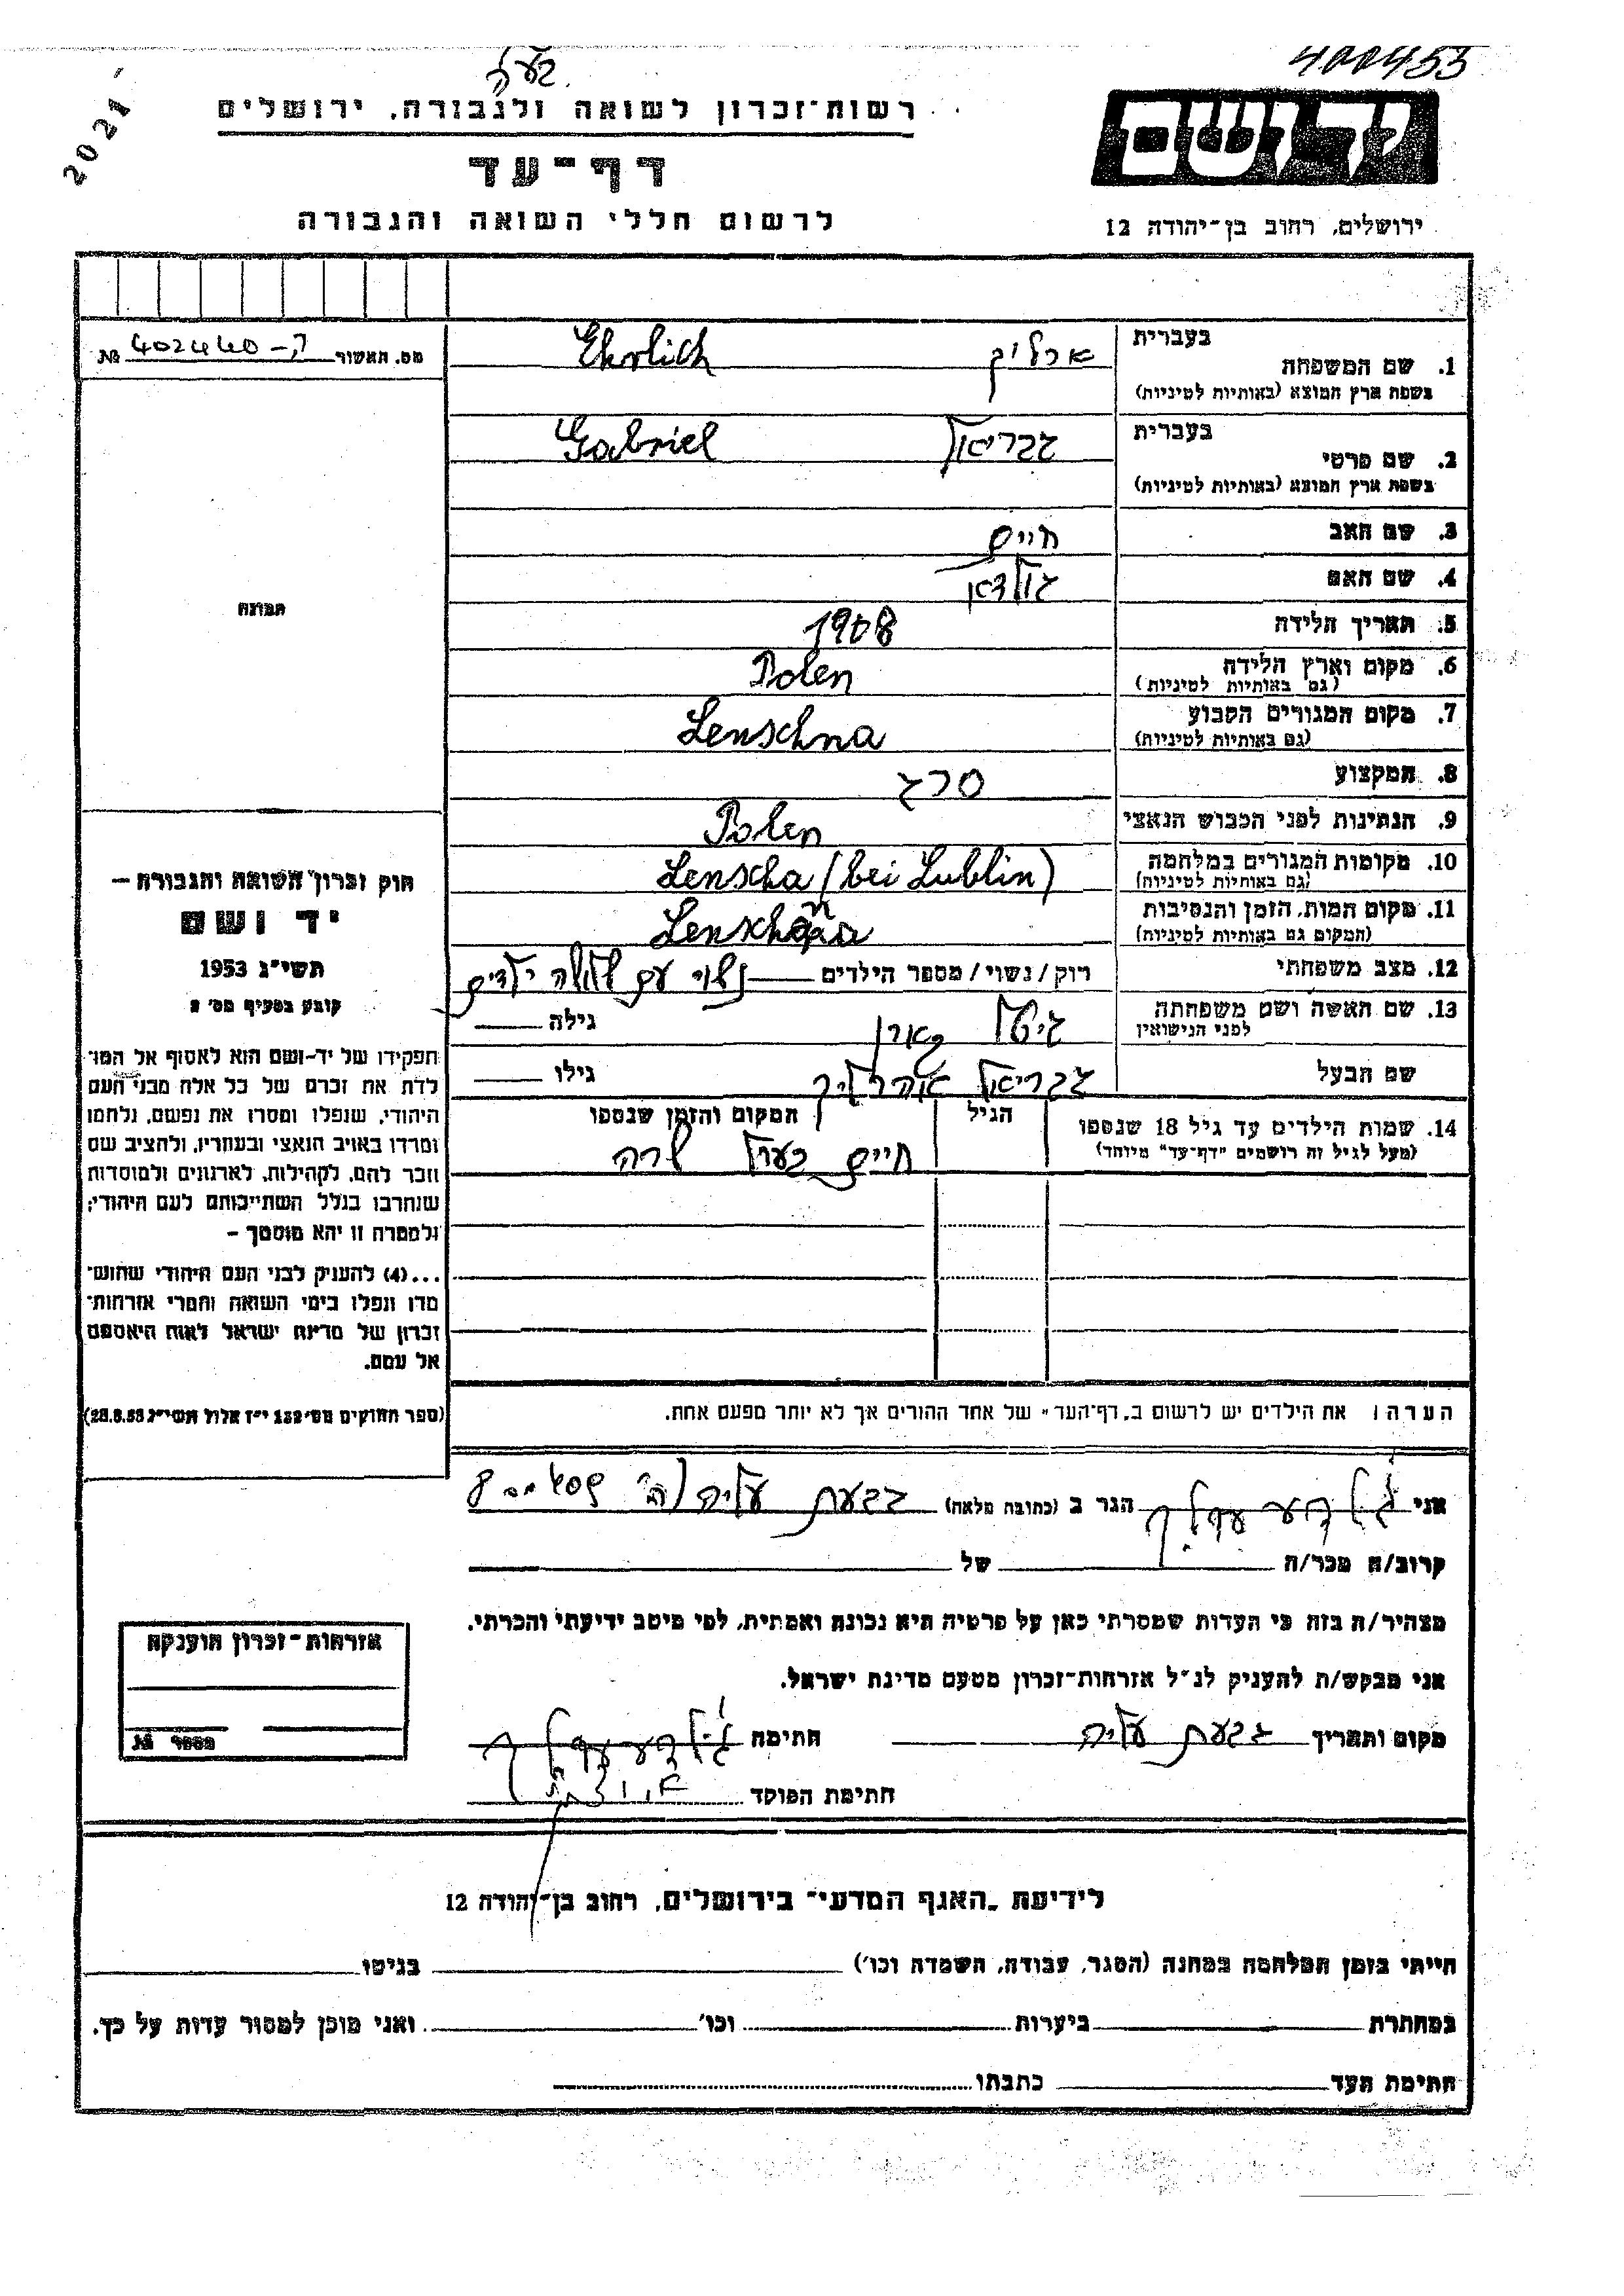 400455
2021
רשות-זכרון לשואה ולגבורה, ירושלים
יד ושם
דף-עד
לרשום חללי השואה והגבורה
ירושלים, רחוב בן-יהודה 12
בעברית
1. שם המשפחה ארליך Ehrlich
בשפת ארץ המוצא (באותיות לטיניות)
מס. האשור № 402440
בעברית
2. שם פרטי גבריאל Gabriel
בשפת ארץ המוצא (באותיות לטיניות)
3. שם האב חיים
4. שם האם
5. תאריך הלידה 1908
6. מקום וארץ הלידה Polen
(גם באותיות לטיניות)
7. מקום המגורים הקבוע Lenschna
(גם באותיות לטיניות)
8. המקצוע
9. הנתינות לפני הכבוש הנאצי Polen
10. מקומות המגורים במלחמה Lenscha (bei Lublin)
(גם באותיות לטיניות)
11. מקום המות, הזמן והנסיבות
(המקום גם באותיות לטיניות)
12. מצב משפחתי רוק/נשוי/מספר הילדים נשוי עם שלושה ילדים
13. שם האשה ושם משפחתה גיטל גילה
לפני הנישואין
שם הבעל גבריאל אהרליך גילו
14. שמות הילדים עד גיל 18 שנספו הגיל המקום והזמן שנספו
(מעל לגיל זה רושמים "דף-עד" מיוחד) חיים שרה
הערה: את הילדים יש לרשום ב"דף-העד" של אחד ההורים אך לא יותר מפעם אחת.
תמונה
חוק זכרון השואה והגבורה –
יד ושם
תשי"ג 1953
קובע בסעיף מס' 2
תפקידו של יד-ושם הוא לאסוף אל המו-
לדת את זכרם של כל אלה מבני העם
היהודי, שנפלו ומסרו את נפשם, נלחמו
ומרדו באויב הנאצי ובעוזריו, ולהציב שם
וזכר להם, לקהילות, לארגונים ולמוסדות
שנחרבו בגלל השתייכותם לעם היהודי;
ולמטרה זו יהא מוסמך –
...(4) להעניק לבני העם היהודי שהוש-
מדו ונפלו בימי השואה והמרי אזרחות-
זכרון של מדינת ישראל לאות היאספם
אל עמם.
(ספר החוקים מס' 132 י"ז אלול תשי"ג 28.8.53)
אני הגר ב (כתובת מלאה) גבעת עליה
קרוב/ה מכר/ה של
מצהיר/ה בזה כי העדות שמסרתי כאן על פרטיה היא נכונה ואמתית, לפי מיטב ידיעתי והכרתי.
אני מבקש/ת להעניק לנ"ל אזרחות-זכרון מטעם מדינת ישראל.
מקום ותאריך גבעת עליה חתימה
חתימת הפוקד
אזרחות-זכרון הוענקה
מספר №
לידיעת "האגף המדעי" בירושלים, רחוב בן-יהודה 12
הייתי בזמן המלחמה במחנה (הסגר, עבודה, השמדה וכו') בגיטו
במחתרת ביערות וכו' ואני מוכן למסור עדות על כך.
חתימת העד כתבתו